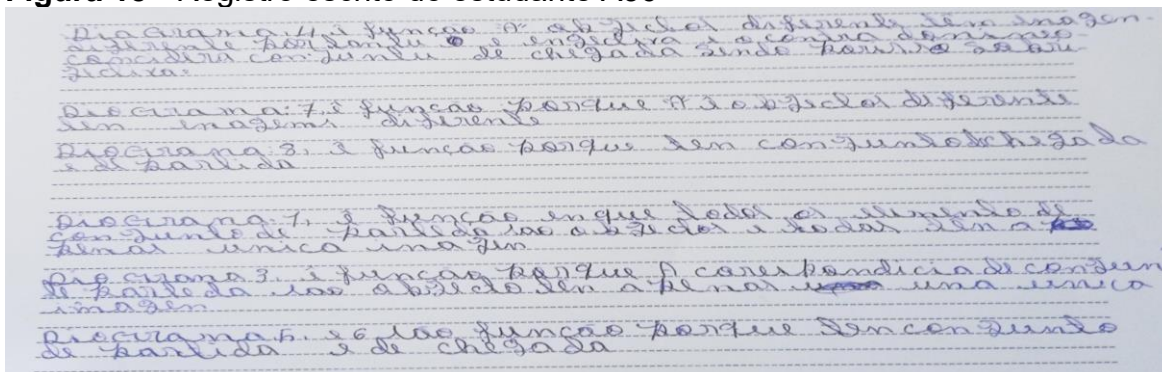 Figura 10 - Registro escrito do estudante A30
Diagrama. 4, é função n° objectos diferente tên inagen-
diferente portanto e engectiva i o contra dominio-
concidira conjunto de chegada sendo porisso sobri
jectiva.
Diagrama: 7. é função porque n° é objectos diferente
ten inagems diferente
Diagrama: 3. é função porque ten conjunto de chegada
e de partida
Diagrama: 1. é função enque todos os elimento de
conjunto de partida são objectos e todos tên a
penas unica inagen
Diagrama 3. é função porque A corespondicia de conjun
de partida são objecto ten apenas una unica
imagen
Diagrama 5. e 6 são função porque ten conjunto
de partida e de chegada